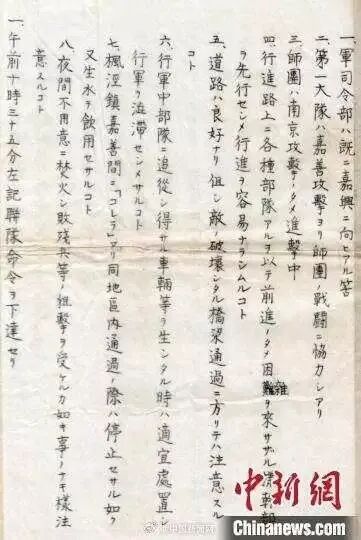 一、軍司令部ハ既ニ嘉興ニ向セアル筈
二、第一大隊ハ嘉善攻撃ヨリ師團ノ戰鬪ニ協力シアリ
三、師團ハ南京攻撃ノタメ進撃中
四、行進路上ニ各種部隊アルヲ以テ前進ノタメ困難雜ヲ來サザル
ヲ先行セシメ行進ヲ容易ナラシムルコト
五、道路ハ良好ナリ但シ敵ノ破壞シタル橋梁通過ニ方リテハ注意スル
コト
六、行軍中部隊ニ追從シ得サル車輛等ヲ生シタル時ハ適宜處置シ
行軍ヲ澁滯セシメサルコト
七、楓涇鎮嘉善間ニ「コレラ」アリ同地區内通過ノ際ハ停止セサル如ク
又生水ヲ飲用セサルコト
八、夜間不用意ニ焚火シ敗殘兵等ノ狙撃ヲ受ケルカ如キ事ノナキ樣注
意スルコト
一、午前十時三十五分左記聯隊命令ヲ下達セリ
中新網
www.chinanews.com
@中国新闻网